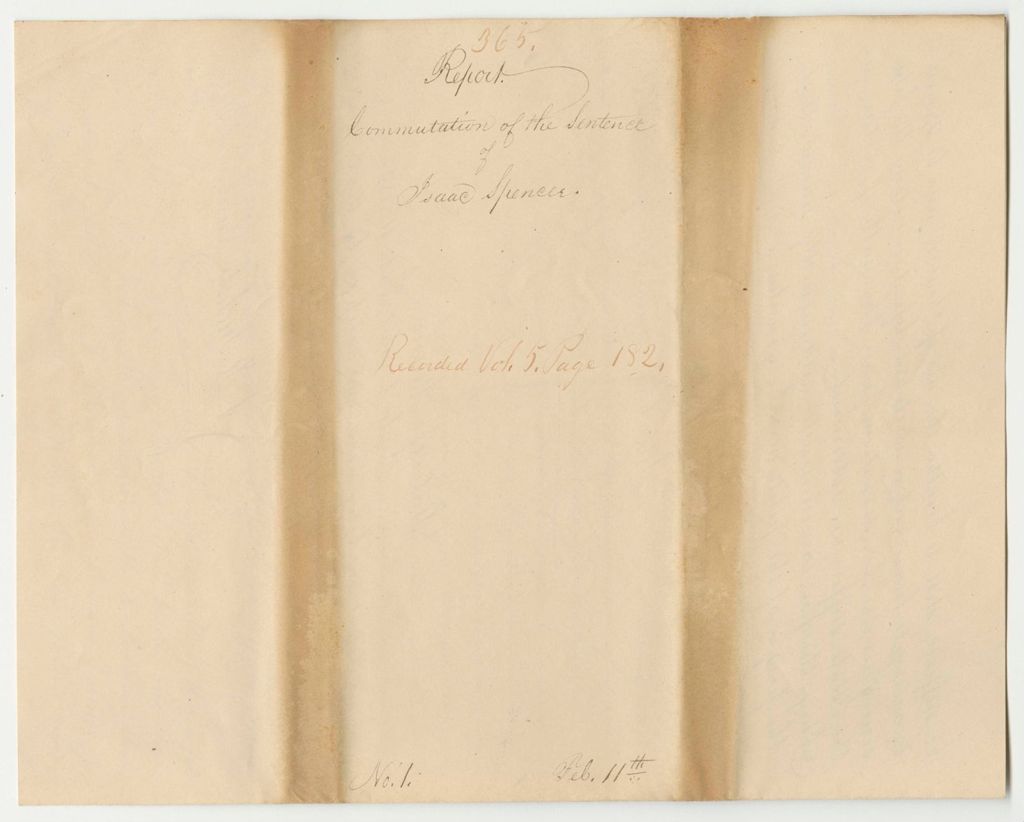 365.
Report.
Commutation of the Sentence
of
Isaac Spencer.
Recorded Vol. 5. Page 182.
No. 1.
Feb. 11th